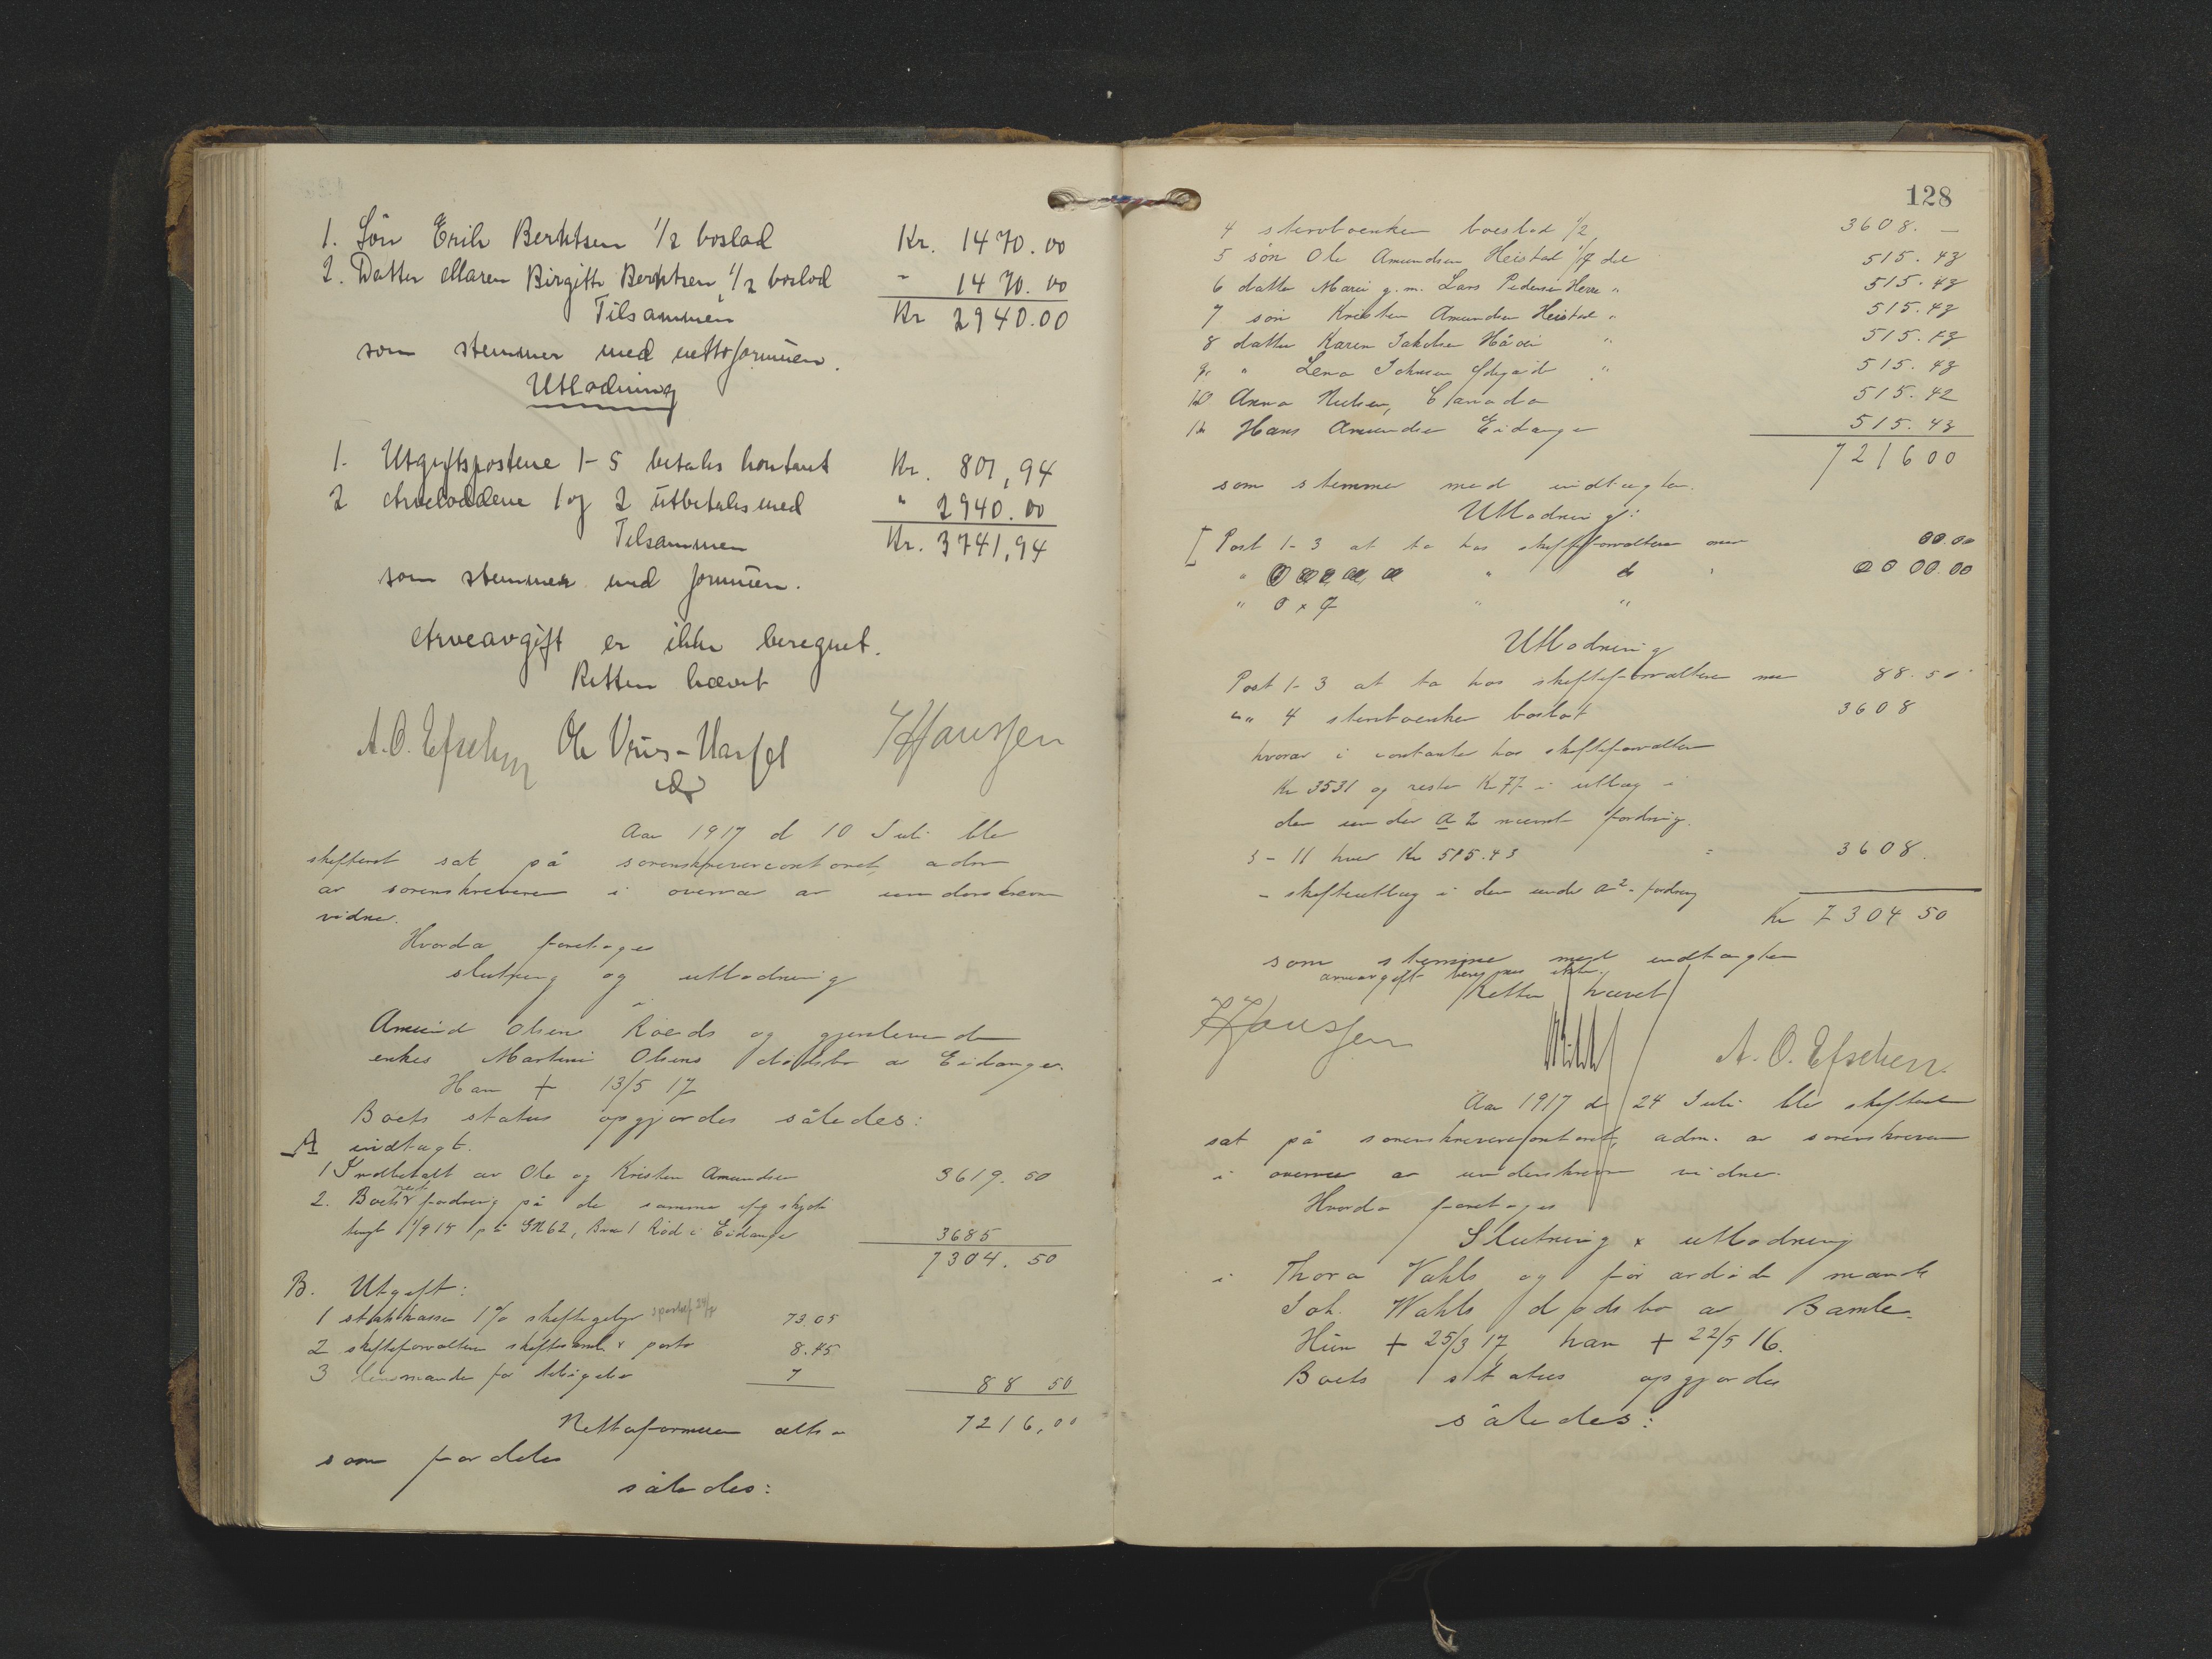 1. Sön Erik Berntsen 1/2 boslod Kr. 1470.00
2. Datter Maren Birgitte Berntsen, 1/2 boslod " 1470.00
Tilsammen Kr 2940.00
som stemmer med nettoformuen.
Utlodning
1. Utgiftspostene 1-5 betales kontant Kr. 801,94
2 Arveloddene 1 og 2 utbetales med " 2940.00
Tilsammen Kr. 3741,94
som stemmer med formuen.
Arveavgift er ikke beregnet.
Retten hævet
A. O. Efschen Ole Hanssen
Aar 1917 d 10 Juli ble
skifteret sat på sorenskrivercontoret, adm
av sorenskriveren i overvær av underskrevne
vidne.
Hvorda foretoges
slutning og utlodning
i
Amund Olsen Röeds og gjenlevende
enkes Martine Olsens dødsbo av Eidanger.
Han + 13/5 17
Boets status opgjordes således:
A indtægt.
1 Indbetalt av Ole og Kristen Amundsen 3619.50
2. Boets rest fordring på de samme ifg skjöte
tingl 1/9 15 på GN 62, Bno 1 Röd i Eidanger 3685
7304.50
B. Utgift:
1 statskassen 1% skiftegebyr 73.05
2 skifteforvalteren skifteseml. x porto 8.45
3 lensmanden for 7 88 50
Nettoformuen altså 7216,00
som fordeles
således:
128
4 stervboenken boeslod 1/2 3608. -
5 sön Ole Amundsen Heistad 1/7 del 515.43
6 datter Maren g.m. Lars Pedersen Herre " 515.43
7 sön Kristen Amundsen Heistad " 515.43
8 datter Karen Jakobsen Håøen " 515.43
9. " Lena Johnsen " 515.43
10 Anna Nielsen, Canada 515.42
11 Hans Amundsen Eidanger 515.43
721600
som stemmer med indtægten.
Utlodning:
[ Post 1-3 at ta hos skifteforvalteren med 00.00
" " " 0000.00
" " "
Utlodning
Post 1-3 at ta hos skifteforvalteren med 88.50
" " 4 stervboenken boslod 3608
hvorav i contanter hos skifteforvalteren
Kr 3531 og resten Kr 77 i utlæg i
den under A 2 nævnte fordring.
5-11 hver Kr 515.43 = 3608.
- skifteutlæg i den under A2 - fordring
Kr 7304 50
som stemmer med indtægten
arveavgift beregnes ikke.
Retten hævet
Hanssen A. O. Efschen.
Aar 1917 d 24 Juli ble skifteret
sat på sorenskrivercontoret, adm. av sorenskriveren
i overvær av underskrevne vidner.
Hvorda foretoges
Slutning x utlodning
i Thora Vahls og för avdöde mands
Joh. Wahls dødsbo av Bamle.
Hun + 25/3 17, han + 22/5 16.
Boets status opgjordes
således: